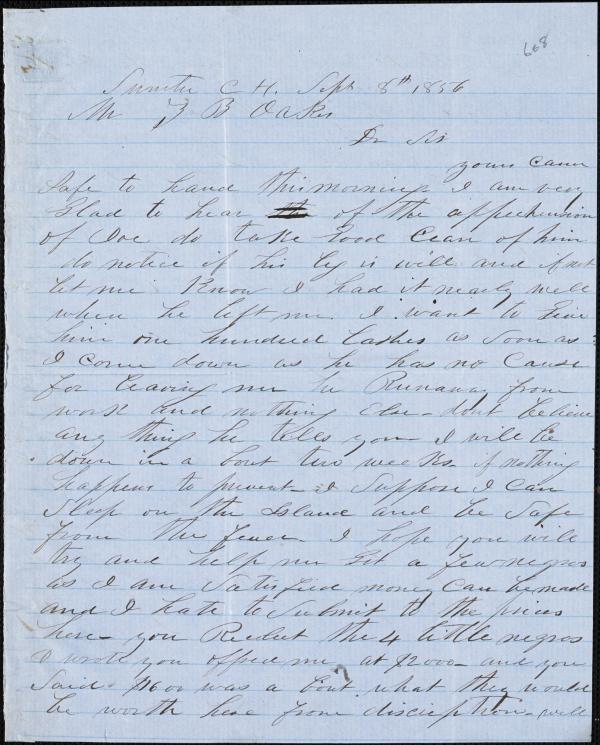 668
Sumter C H. Sept 8th 1856
Mr Z B Oakes
Dr Sir
yours came
Safe to hand this morning I am very
Glad to hear of the apprehension
of Joe do take Good Cear of him
do notice if his leg is will and if not
let me Know I had it nearly well
when he left me. I want to Give
him one hundred lashes as soon as
I come down as he has no Cause
for leaving me he Runaway from
work and nothing Else - dont believe
any thing he tells you - I will be
down in a bout two weeks if nothing
happens to prevent - I suppose I can
Sleep on the Island and be Safe
from the fever - I hope you will
try and help me Get a few negros
as I am Satisfied money can be made
and I hate to Submit to the prices
here - you Reclect the 4 little negros
I wrote you offred me at $2000 - and you
Said $1600 was a bout what they would
be worth here from discription - will